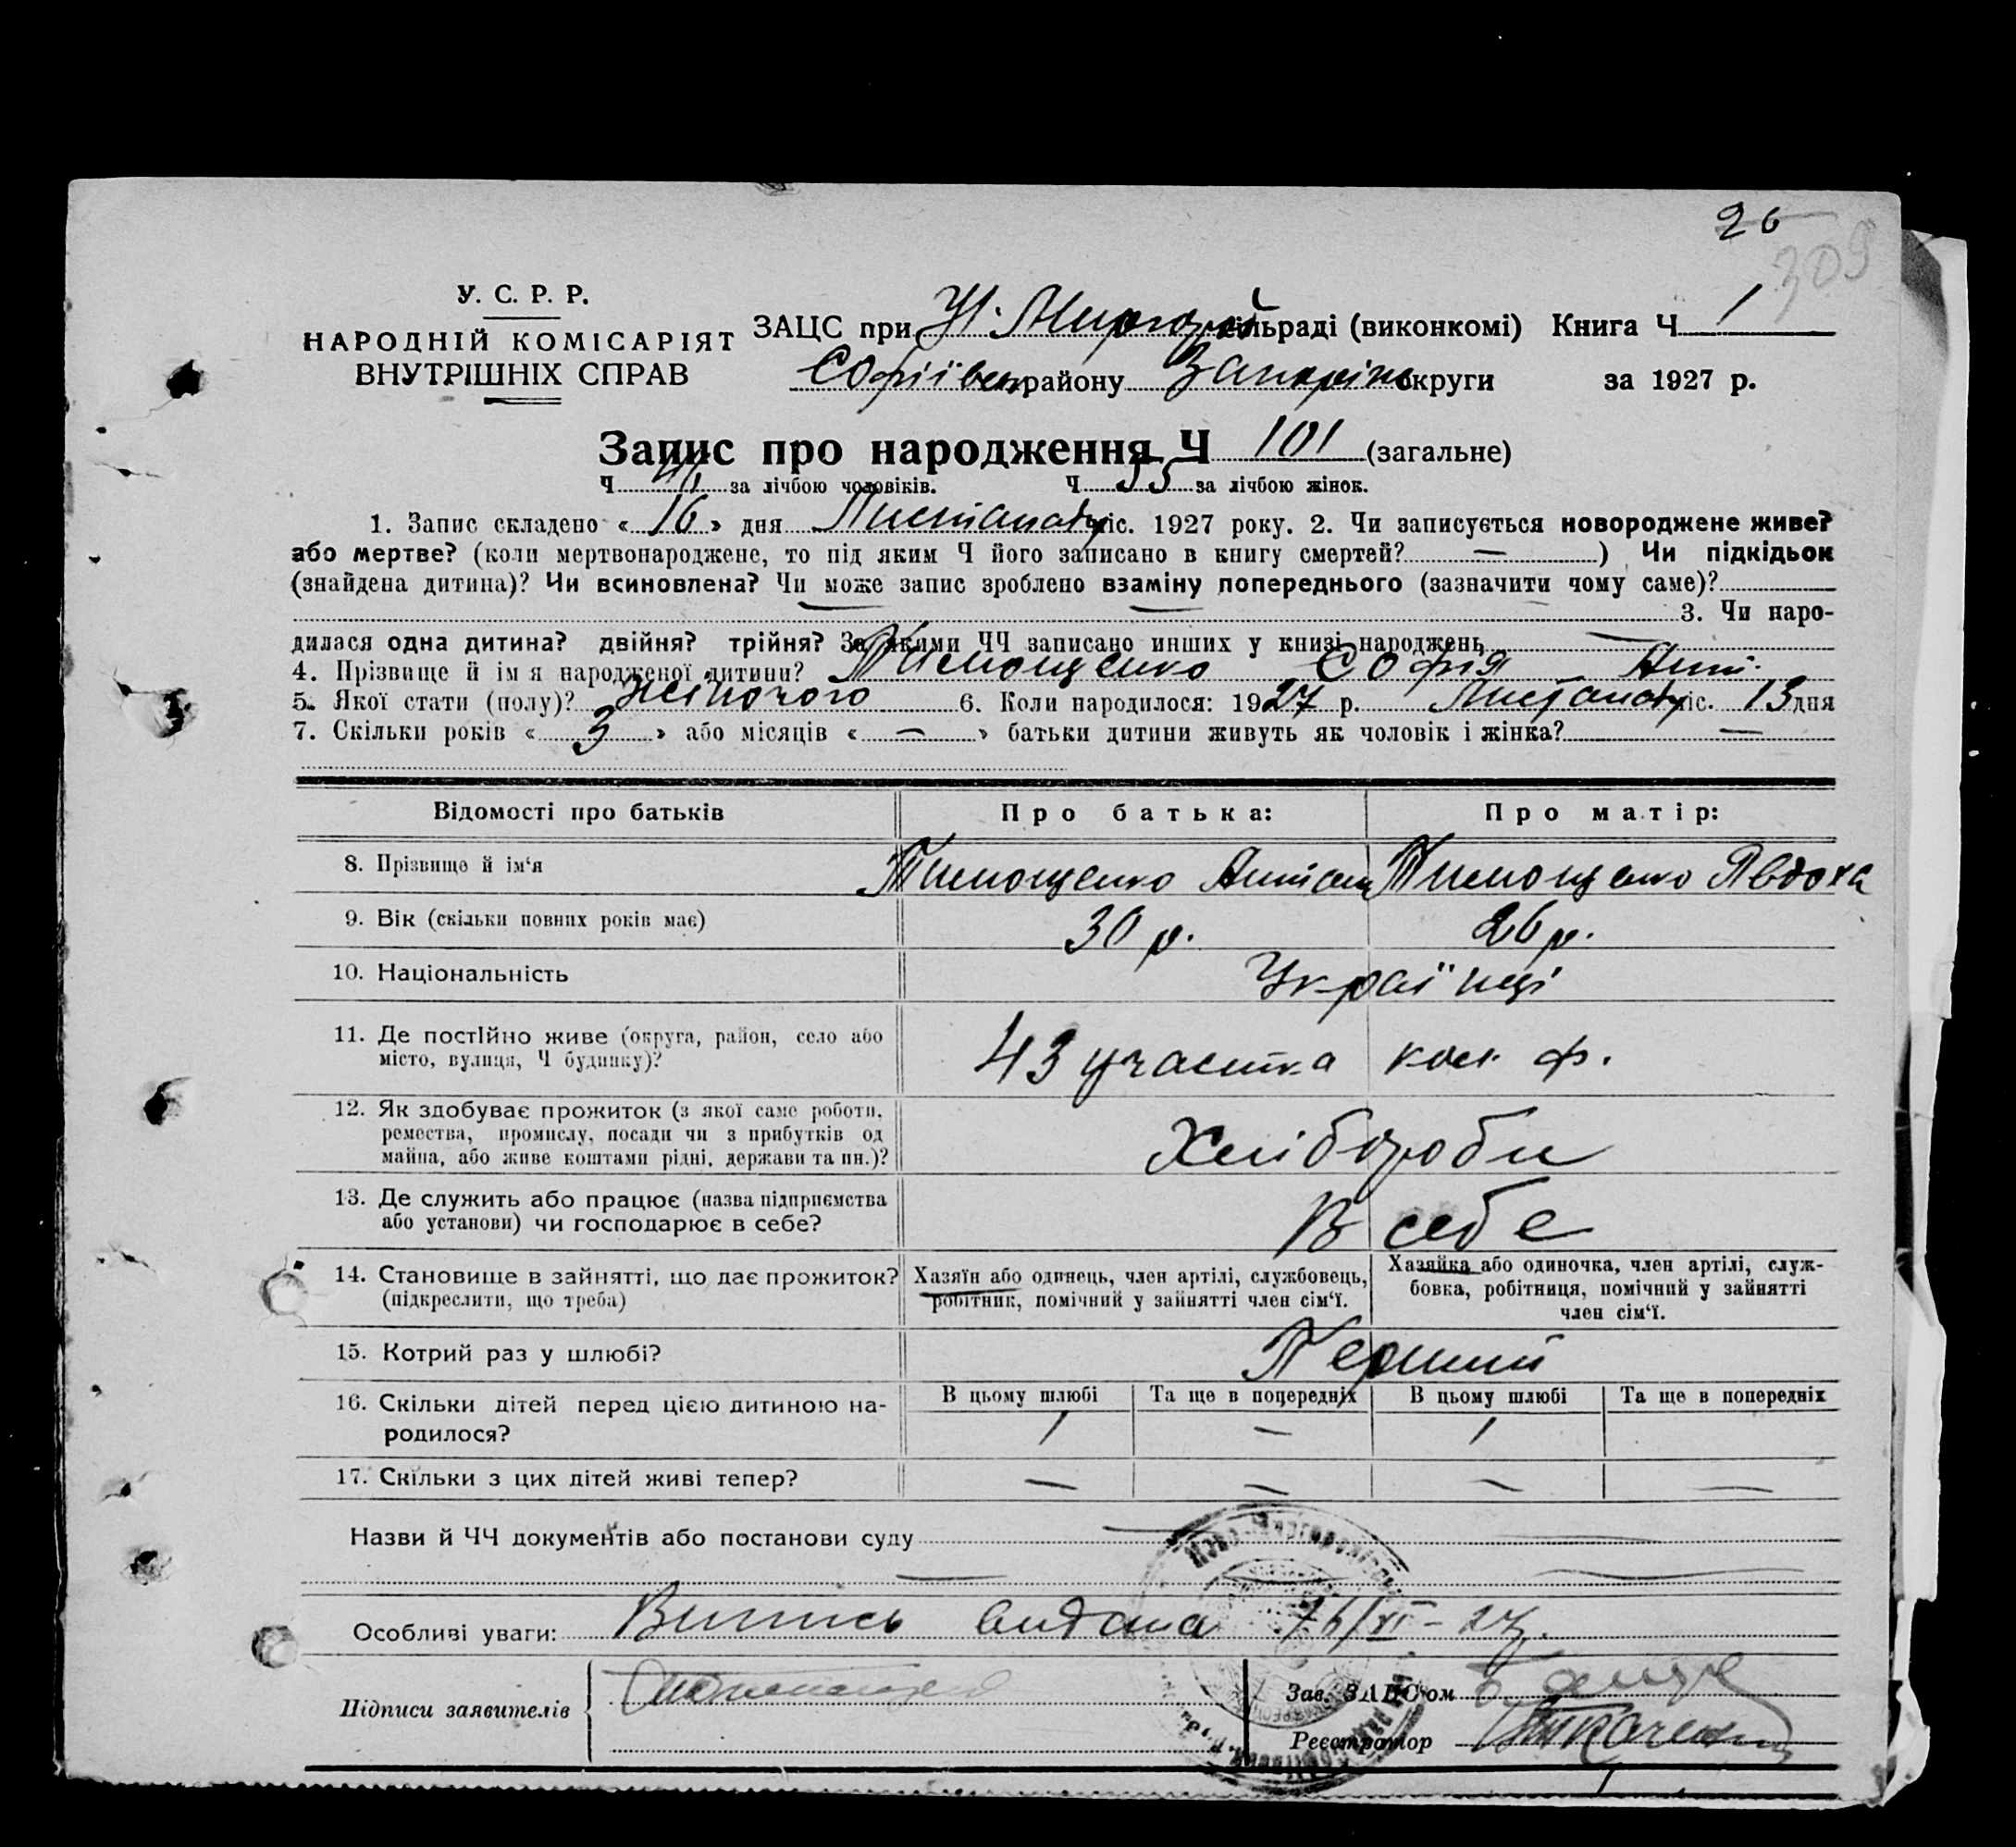 26
309
У. С. Р. Р.
НАРОДНІЙ КОМІСАРІЯТ
ВНУТРІШНІХ СПРАВ
ЗАЦС при Н. Миргород сільраді (виконкомі) Книга Ч 1
Софіївськ району Запоріж округи за 1927 р.
Запис про народження Ч 101 (загальне)
Ч 46 за лічбою чоловіків. Ч 55 за лічбою жінок.
1. Запис складено « 16 » дня Листопаду міс. 1927 року. 2. Чи записується новороджене живе?
або мертве? (коли мертвонароджене, то під яким Ч його записано в книгу смертей? — ) Чи підкідьок
(знайдена дитина)? Чи всиновлена? Чи може запис зроблено взаміну попереднього (зазначити чому саме)?
3. Чи наро-
дилася одна дитина? двійня? трійня? За якими ЧЧ записано инших у книзі народжень
4. Прізвище й ім я народженої дитини? Тимощенко Софія Ант.
5. Якої стати (полу)? жіночого 6. Коли народилося: 1927 р. Листопаду міс. 13 дня
7. Скільки років « 3 » або місяців « — » батьки дитини живуть як чоловік і жінка? —
Відомості про батьків Про батька: Про матір:
8. Прізвище й ім‘я Тимощенко Антон Тимощенко Явдоха
9. Вік (скільки повних років має) 30 р. 26 р.
10. Національність Українці
11. Де постІйно живе (округа, район, село або
місто, вулиця, Ч будинку)? 43 участка кол. ф.
12. Як здобуває прожиток (з якої саме роботи,
ремества, промислу, посади чи з прибутків од
майна, або живе коштами рідні, держави та ин.)? Хлібороби
13. Де служить або працює (назва підприємства
або установи) чи господарює в себе? В себе
14. Становище в зайнятті, що дає прожиток?
(підкреслити, що треба)
Хазяїн або одинець, член артілі, службовець,
робітник, помічний у зайнятті член сім‘ї.
Хазяйка або одиночка, член артілі, служ-
бовка, робітниця, помічний у зайнятті
член сім‘ї.
15. Котрий раз у шлюбі? Перший
16. Скільки дітей перед цією дитиною на-
родилося?
В цьому шлюбі Та ще в попередніх В цьому шлюбі Та ще в попередніх
1 — 1
17. Скільки з цих дітей живі тепер? — — — —
Назви й ЧЧ документів або постанови суду
Особливі уваги: Випись видана 16/XI - 27.
Підписи заявителів
Зав. ЗАЦС‘ом
Реєстратор Ткаченко